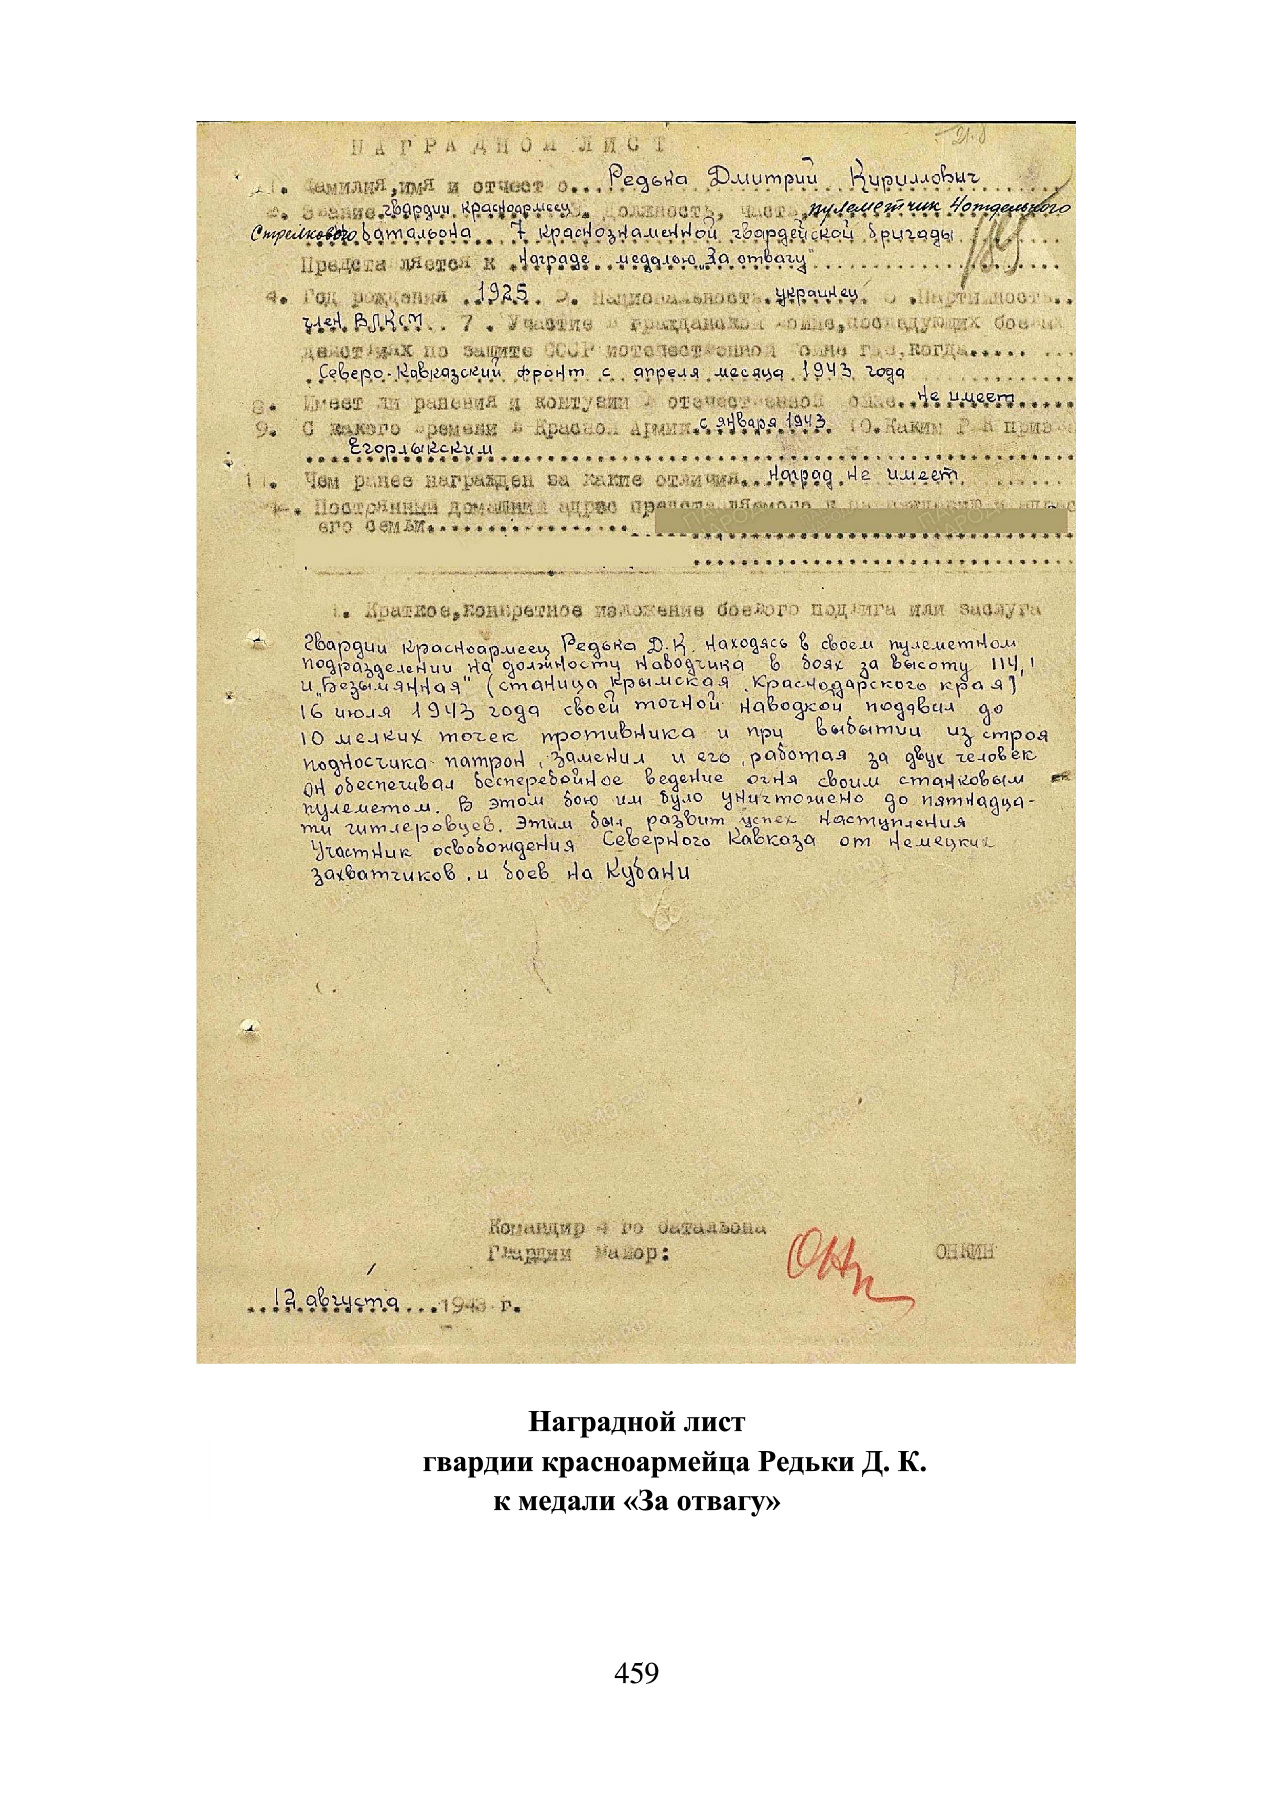 НАГРАДНОЙ ЛИСТ
1. Фамилия, имя и отчество... Редька Дмитрий Кириллович
2. Звание гвардии красноармеец 3. Должность, часть, пулеметчик 4 отдельного
Стрелкового батальона 7 краснознаменной гвардейской бригады
Представляется к награде медалью „За отвагу"
4. Год рождения 1925 5. Национальность украинец 6. Партийность..
член ВЛКСМ 7. Участие в гражданской войне, последующих боевых
действиях по защите СССР и отечественной войне где, когда.....
Северо-Кавказский фронт с апреля месяца 1943 года
8. Имеет ли ранения и контузии в отечественной войне.. не имеет
9. С какого времени в Красной Армии с января 1943. 10. Каким РВК призван
Егорлыкским
11. Чем ранее награжден за какие отличия... Наград не имеет
Постоянный домашний адрес
его семьи
1. Краткое, конкретное изложение боевого подвига или заслуга
Гвардии красноармеец Редька Д. К. находясь в своем пулеметном
подразделении на должности наводчика в боях за высоту 114,1
и „Безымянная" (станица Крымская, Краснодарского края)
16 июля 1943 года своей точной наводкой подавил до
10 мелких точек противника и при выбытии из строя
подносчика патрон, заменил и его, работая за двух человек
он обеспечивал бесперебойное ведение огня своим станковым
пулеметом. В этом бою им было уничтожено до пятнадца-
ти гитлеровцев. Этим был развит успех наступления
Участник освобождения Северного Кавказа от немецких
захватчиков, и боев на Кубани
Командир 4 го батальона
Гвардии майор: ОНКИН
12 августа 1943 г.
Наградной лист
гвардии красноармейца Редьки Д. К.
к медали «За отвагу»
459